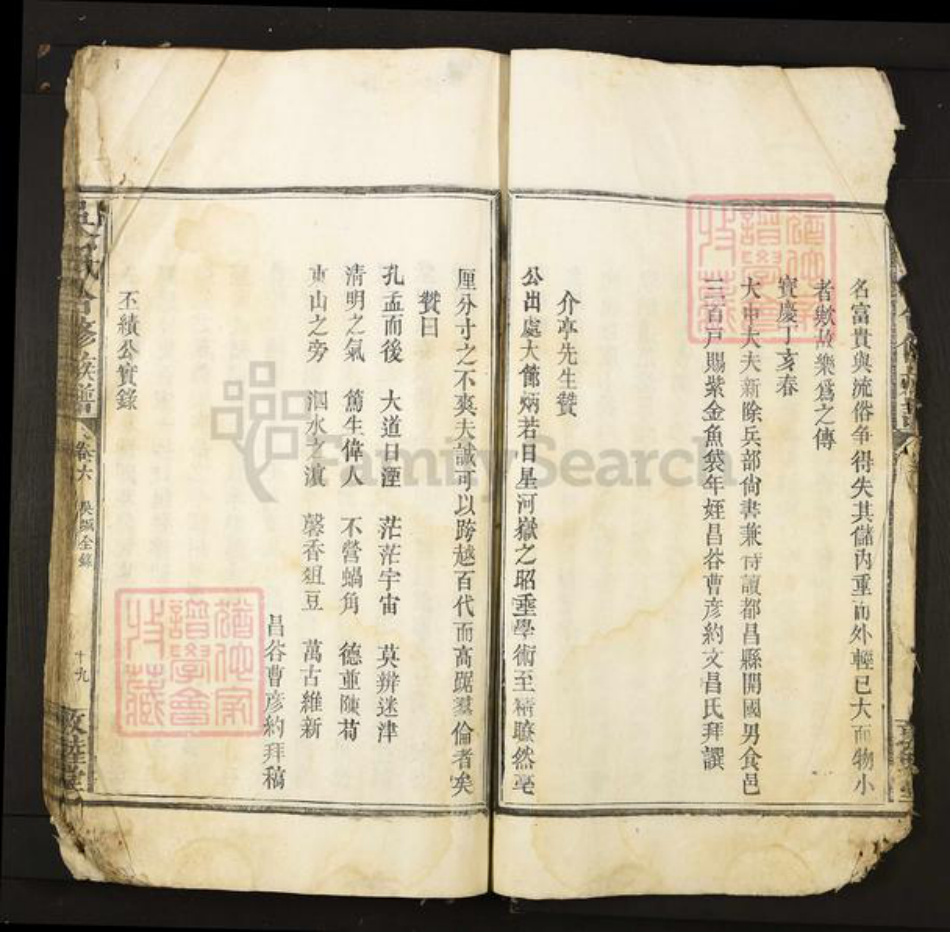 名富貴與流俗争得失其儲內重而外輕已大而物小
者歟故樂爲之傳
寶慶丁亥春
大中大夫新除兵部尙書兼侍讀都昌縣開國男食邑
三百戸賜紫金魚袋年姪昌谷曹彥約文昌氏拜譔
介亭先生贊
公出處大節炳若日星河嶽之昭垂學術至精瞭然毫
厘分寸之不爽夫誠可以跨越百代而高踞羣倫者矣
贊曰
孔孟而後 大道日湮 茫茫宇宙 莫辨迷津
淸明之氣 篤生偉人 不營蝸角 德重陳荀
東山之旁 泗水之濵 馨香俎豆 萬古維新
昌谷曹彥約拜稿
丕績公實錄
吳 會修族譜
卷六
十九
敦
譜學會
收藏
譜學會
收藏
FamilySearch